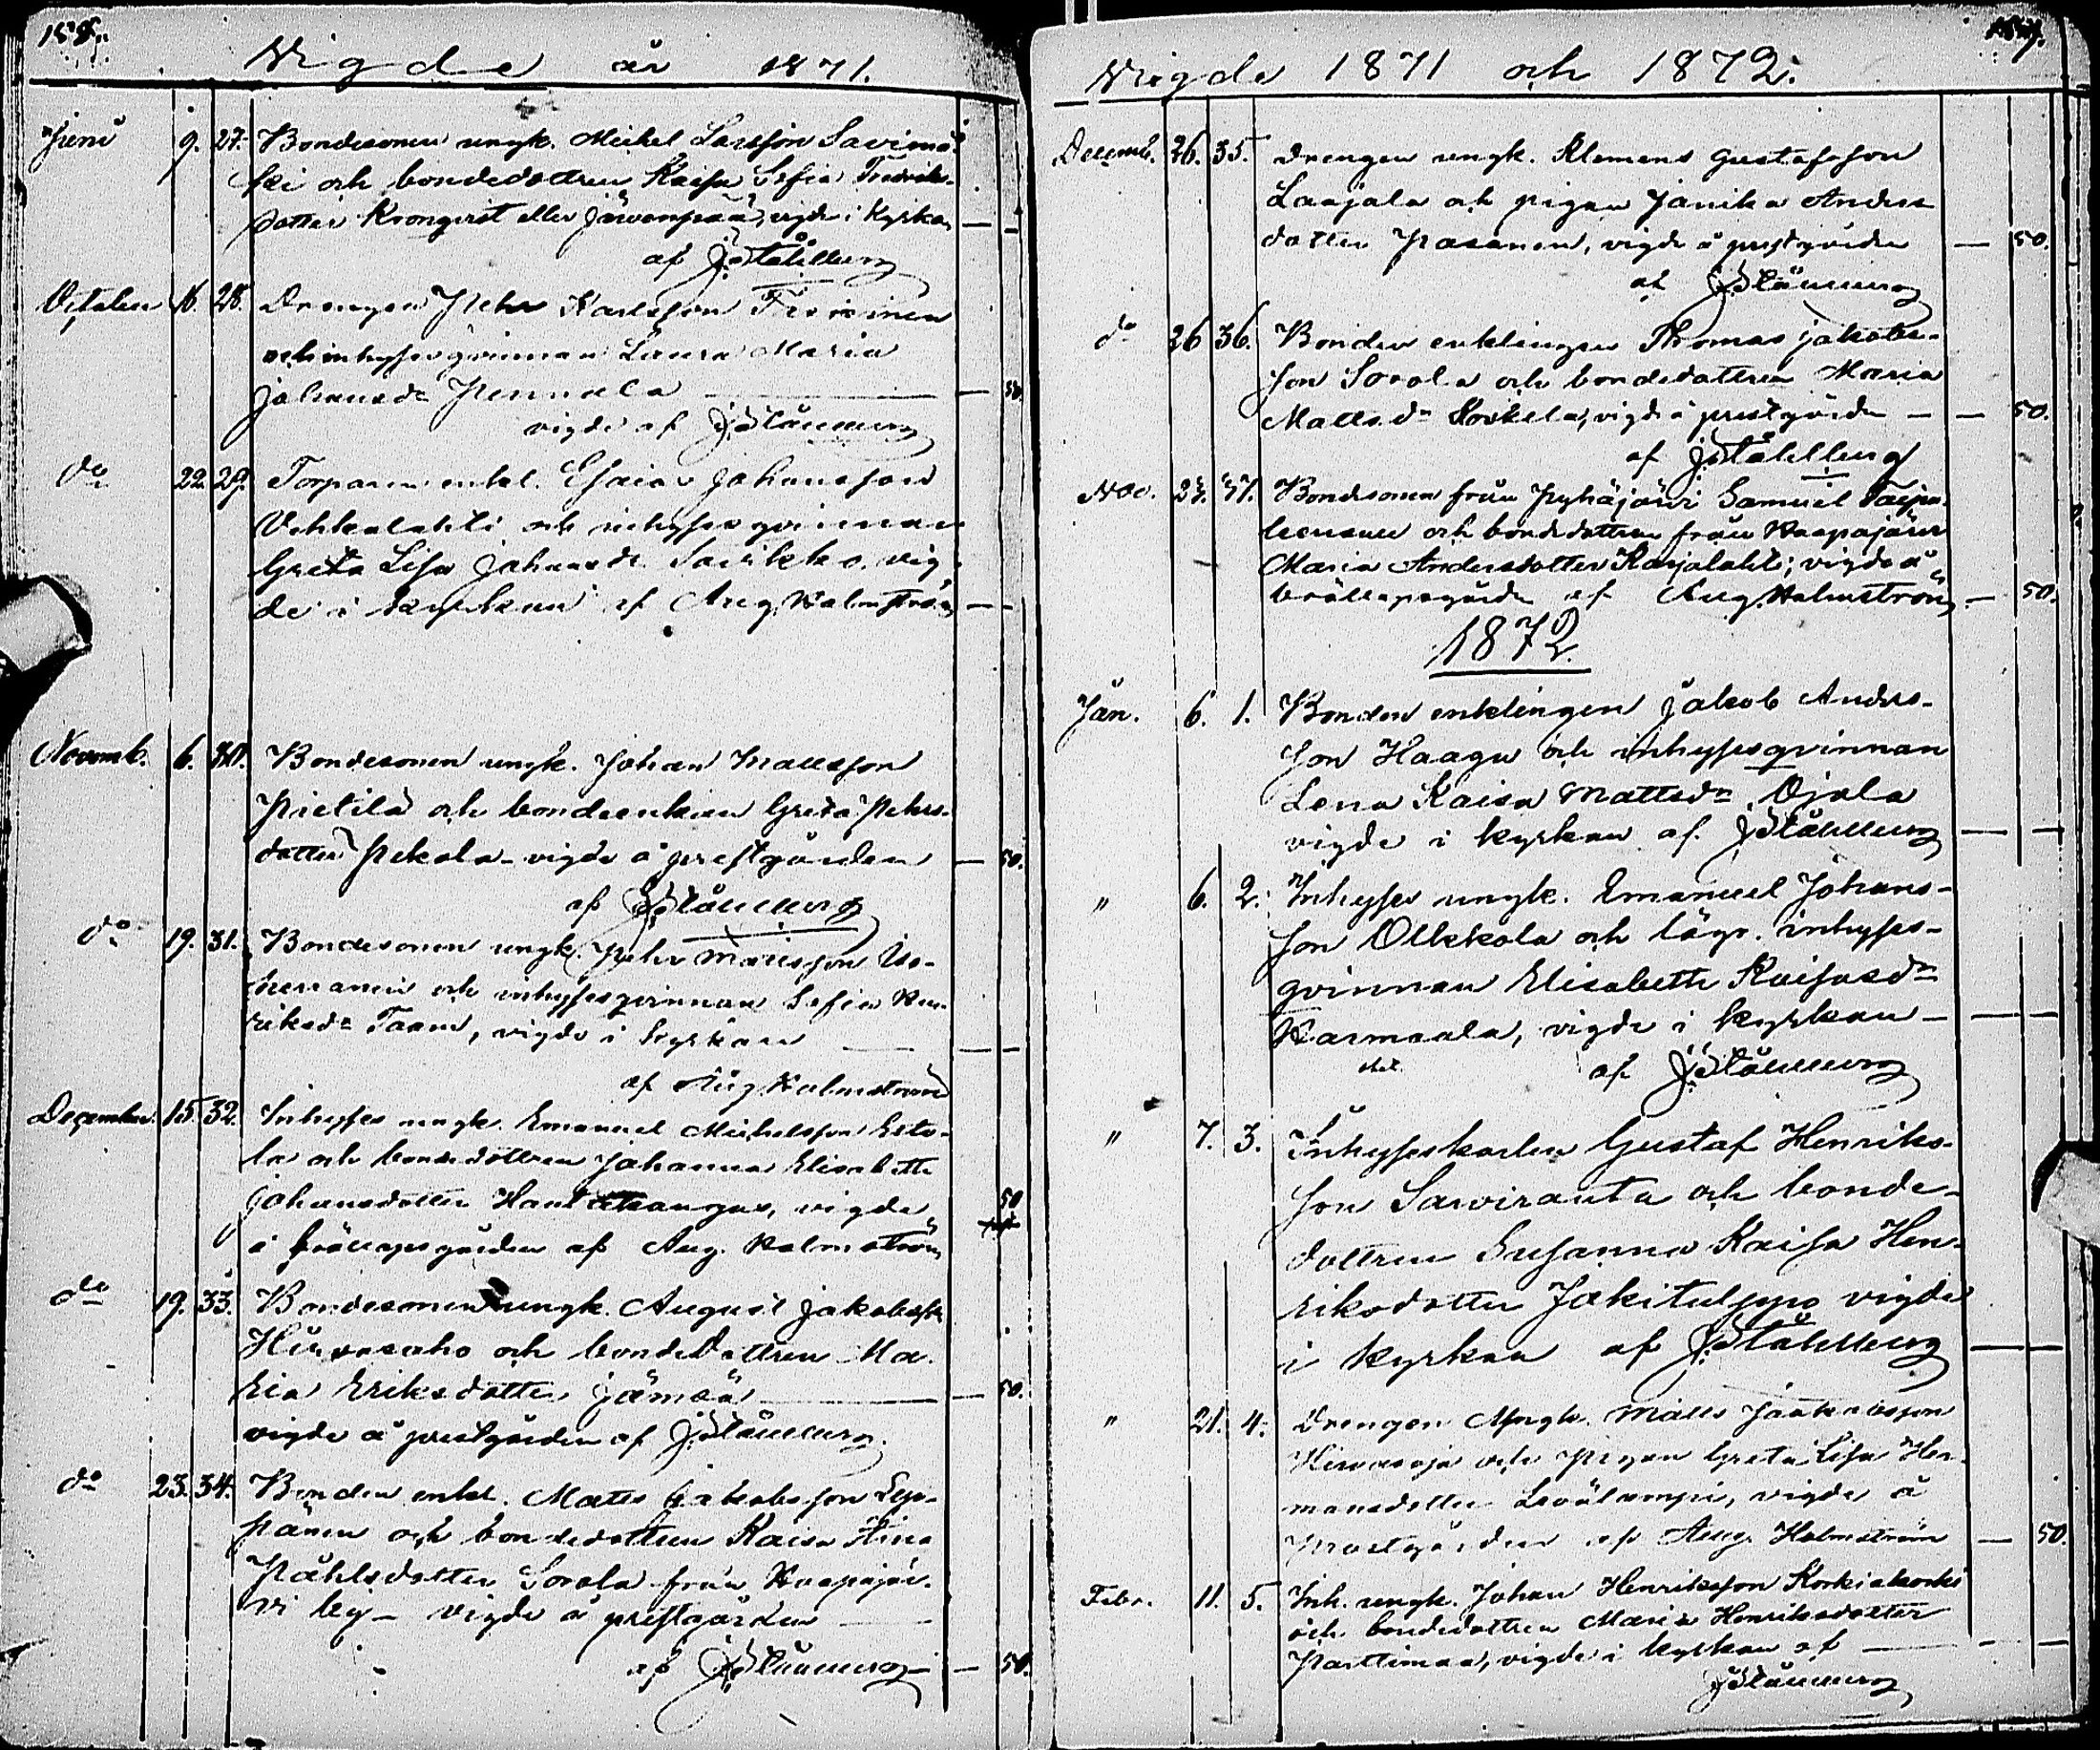 Vigde år 1871.
Juni 9. 27. Bondesonen ungk. Michel Larsson Savimä-
ki och bondedottren Kaisa Sofia Fredriks-
dotter Kronqvist eller Järvenpää, vigde i kyrkan
af J Ståhlberg
October 16. 28. Drengen Pehr Karlsson
och inhysesqvinnan Laura Maria
Johansdr Pennala
vigde af J Ståhlberg
do 22. 29. Torparen enkl. Esaias Johansson
Vehkalahti och inhysesqvinnan
Greta Lisa Johansdr Savikko, vig-
de i kyrkan af Aug. Holmström
Novemb. 6. 30. Bondesonen ungk. Johan Mattsson
Pietilä och bondeenkan Greta Pehrs-
dotter Pekola vigde å prestgården — 50.
af J Ståhlberg
do 19. 31. Bondesonen ungk. Pehr Mattsson
och inhysesqvinnan Sofia Hen-
riksdr, vigde i kyrkan
af Aug Holmström
December 15. 32. Inhyses ungk. Emanuel Michelsson
la och bondedottren Johanna Elisabeth
Johansdotter, vigde 50
å bröllopsgården af Aug. Holmström
do 19. 33. Bondesonen ungk. August Jakobsson
Hirvasaho och bondedottren Ma-
ria Eriksdotter Jämsä — 50.
vigde å prestgården af J Ståhlberg
do 23. 34. Bonden enkl. Matts Jakobsson Lep-
pänen och bondedottren Kaisa Stina
Påhlsdotter Sorola från Haapajär-
vi by – vigde å prestgården
af J Ståhlberg — 50.
Vigde 1871 och 1872.
Decemb. 26. 35. Drengen ungk. Klemens Gustafsson
Laajala och pigan Janika Anders-
dotter Pasanen, vigde å prestgården — 50.
af J Ståhlberg
do 26 36. Bonden enklingen Thomas Jakobs-
son Sorola och bondedottren Maria
Mattsdr Koskela, vigde å prestgården — 50.
af J Ståhlberg
Nov. 37. Bondesonen från Pyhäjärvi Samuel
och bondedottren från Haapajärvi
Maria Andersdotter Karjalahti; vigde å
bröllopsgården af Aug. Holmström — 50.
1872.
Jan. 6. 1. Bonden enklingen Jakob Anders-
son Haaga och inhysesqvinnan
Lena Kaisa Mattsdr Ojala
vigde i kyrkan af J Ståhlberg
" 6. 2. Inhyses ungk. Emanuel Johans-
son Ollikkala och lägr. inhyses-
qvinnan Elisabeth Kaisasdr
Karmaala, vigde i kyrkan —
af J Ståhlberg
" 7. 3. Inhyseskarlen Gustaf Henriks-
son Saviranta och bonde-
dottren Susanna Kaisa Hen-
riksdotter Jokitulppo vigde
i kyrkan af J Ståhlberg
" 21. 4. Drengen ungk. Matts Jaakobsson
Hirvasoja och pigan Greta Lisa Her-
mansdotter, vigde å
prestgården af Aug. Holmström — 50.
Febr. 11. 5. Inh. ungk. Johan Henriksson Korkiakoski
och bondedottren Maria Henriksdotter
Parttimaa, vigde i kyrkan af
J Ståhlberg